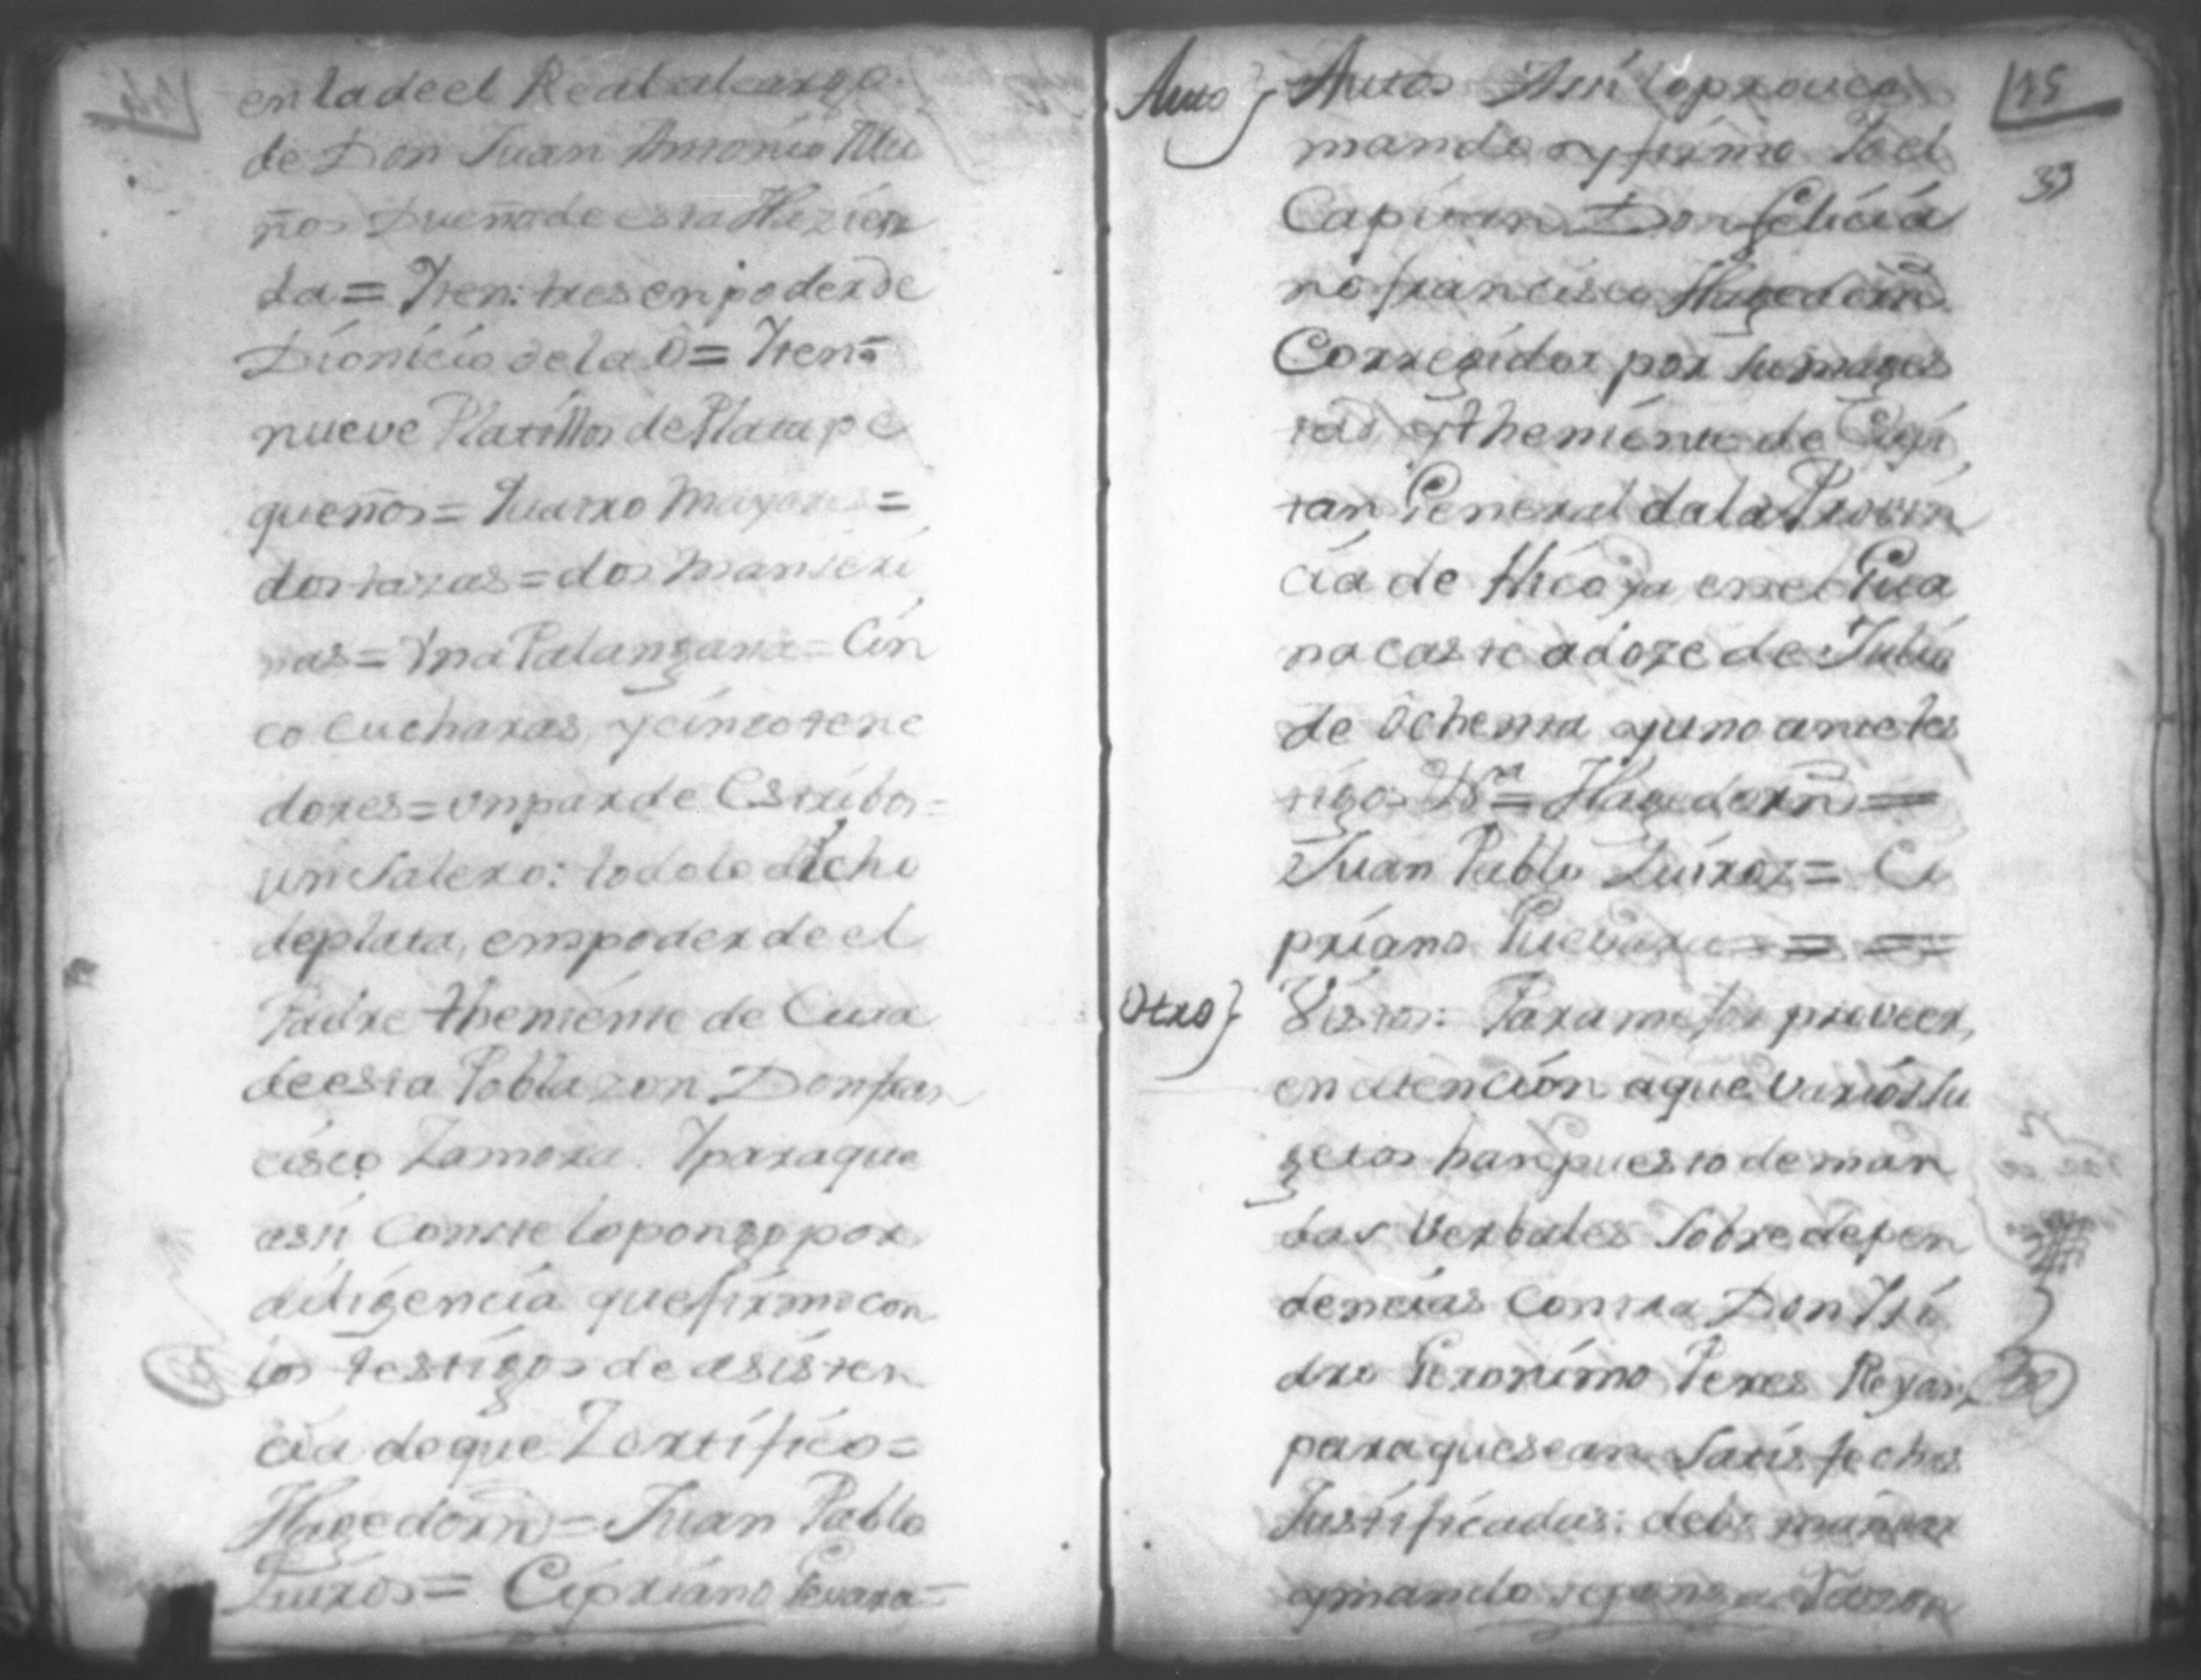 en la de el Real al cargo
de Don Juan Antonio Mu
ños Dueño de esta Hazien
da = Yten: tres en poder de
Dionicio de la Ô = Yten:
nueve Platillos de Plata pe
queños = quatro mayores =
dos tazas = dos Manseri
nas = Vna Palangana = Cin
co cucharas, y cinco tene
dores = un par de Estribos =
un salero: todo lo dicho
de plata, em poder de el
Padre theniente de Cura
de esta Poblazon Don Fran
cisco Zamora. Y para que
asi conste lo pongo por
diligencia que firmo con
los testigos de asisten
cia de que Zertifico =
Hagedorn = Juan Pablo
Quiros = Cipriano Gevara =
Auto} Autos Assi lo proueo
mando y firmo Yo el
Capitan Don Felicia
no Francisco Hagedorn
Corregidor por su mages
tad, y theniente de Capi
tan General da la Provin
cia de Nicoya en el Gua
nacaste a doze de Julio
de ôchenta y uno ante tes
tigos = Hagedorn =
Juan Pablo Quiroz = Ci
priano Guevara = =
Otro} Vistos: Para mejor proveer,
en atencion a que varios su
getos han puesto deman
das verbales sobre depen
dencias contra Don Ysi
dro Geronimo Peres Reyan,
para que sean satisfechos
Justificadas: debo mandar
y mando se ponga Razon
115
33